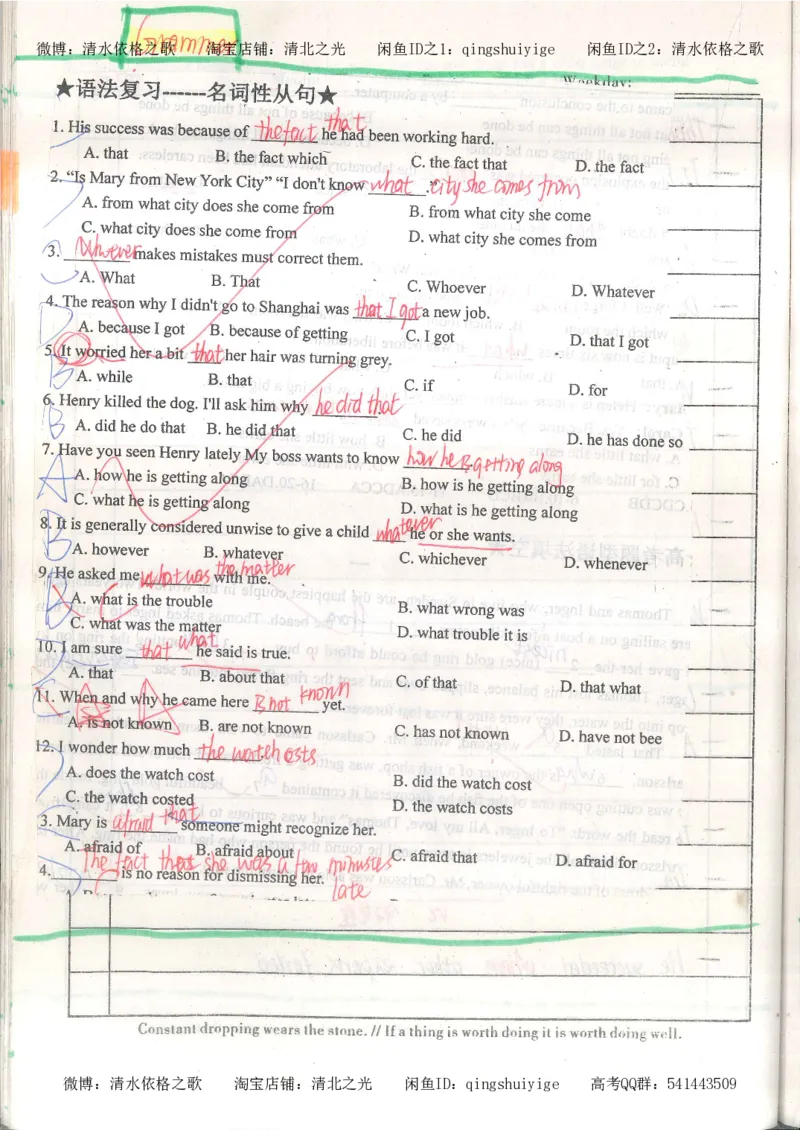 Grammar
微博：清水依格之歌 淘宝店铺：清北之光 闲鱼ID之1：qingshuiyige 闲鱼ID之2：清水依格之歌
Weekday:
★语法复习------名词性从句★
1. His success was because of the fact that he had been working hard.
A. that B. the fact which C. the fact that D. the fact
2. “Is Mary from New York City” “I don't know what city she comes from.”
A. from what city does she come from B. from what city she come
C. what city does she come from D. what city she comes from
3. Whoever makes mistakes must correct them.
A. What B. That C. Whoever D. Whatever
4. The reason why I didn't go to Shanghai was that I got a new job.
A. because I got B. because of getting C. I got D. that I got
5. It worried her a bit that her hair was turning grey.
A. while B. that C. if D. for
6. Henry killed the dog. I'll ask him why he did that
A. did he do that B. he did that C. he did D. he has done so
7. Have you seen Henry lately My boss wants to know how he is getting along
A. how he is getting along B. how is he getting along
C. what he is getting along D. what is he getting along
8. It is generally considered unwise to give a child whatever he or she wants.
A. however B. whatever C. whichever D. whenever
9. He asked me what was the matter with me.
A. what is the trouble B. what wrong was
C. what was the matter D. what trouble it is
10. I am sure that what he said is true.
A. that B. about that C. of that D. that what
11. When and why he came here is not known yet.
A. is not known B. are not known C. has not known D. have not bee
12. I wonder how much the watch costs.
A. does the watch cost B. did the watch cost
C. the watch costed D. the watch costs
3. Mary is afraid that someone might recognize her.
A. afraid of B. afraid about C. afraid that D. afraid for
4. The fact that she was a few minutes late is no reason for dismissing her.
Constant dropping wears the stone. // If a thing is worth doing it is worth doing well.
微博：清水依格之歌 淘宝店铺：清北之光 闲鱼ID：qingshuiyige 高考QQ群：541443509